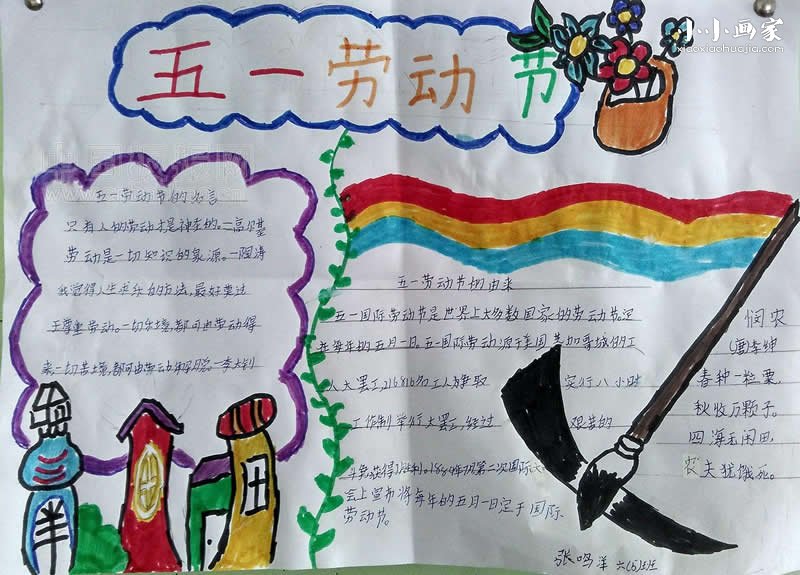 小小画家
xiaoxiaohuajia.com
五一劳动节
五一劳动节的名言
只有人的劳动才是神圣的。—高尔基
劳动是一切知识的泉源。—陶涛
我觉得人生求乐的方法,最好莫过
于尊重劳动。一切乐境,都可由劳动得
来,一切苦境,都可由劳动解脱。—李大钊
五一劳动节的由来
五一国际劳动节是世界上大多数国家的劳动节。
在每年的五月一日。五一国际劳动源于美国芝加哥城的工
人大罢工,216816名工人为争取 实行八小时
工作制举行大罢工,经过 艰苦的
斗争,获得了胜利。1889年7月第二次国际
会上宣布将每年的五月一日定于国际
劳动节。
悯农
(唐)李绅
春种一粒粟,
秋收万颗子。
四海无闲田,
农夫犹饿死。
张鸣洋 六(5)班